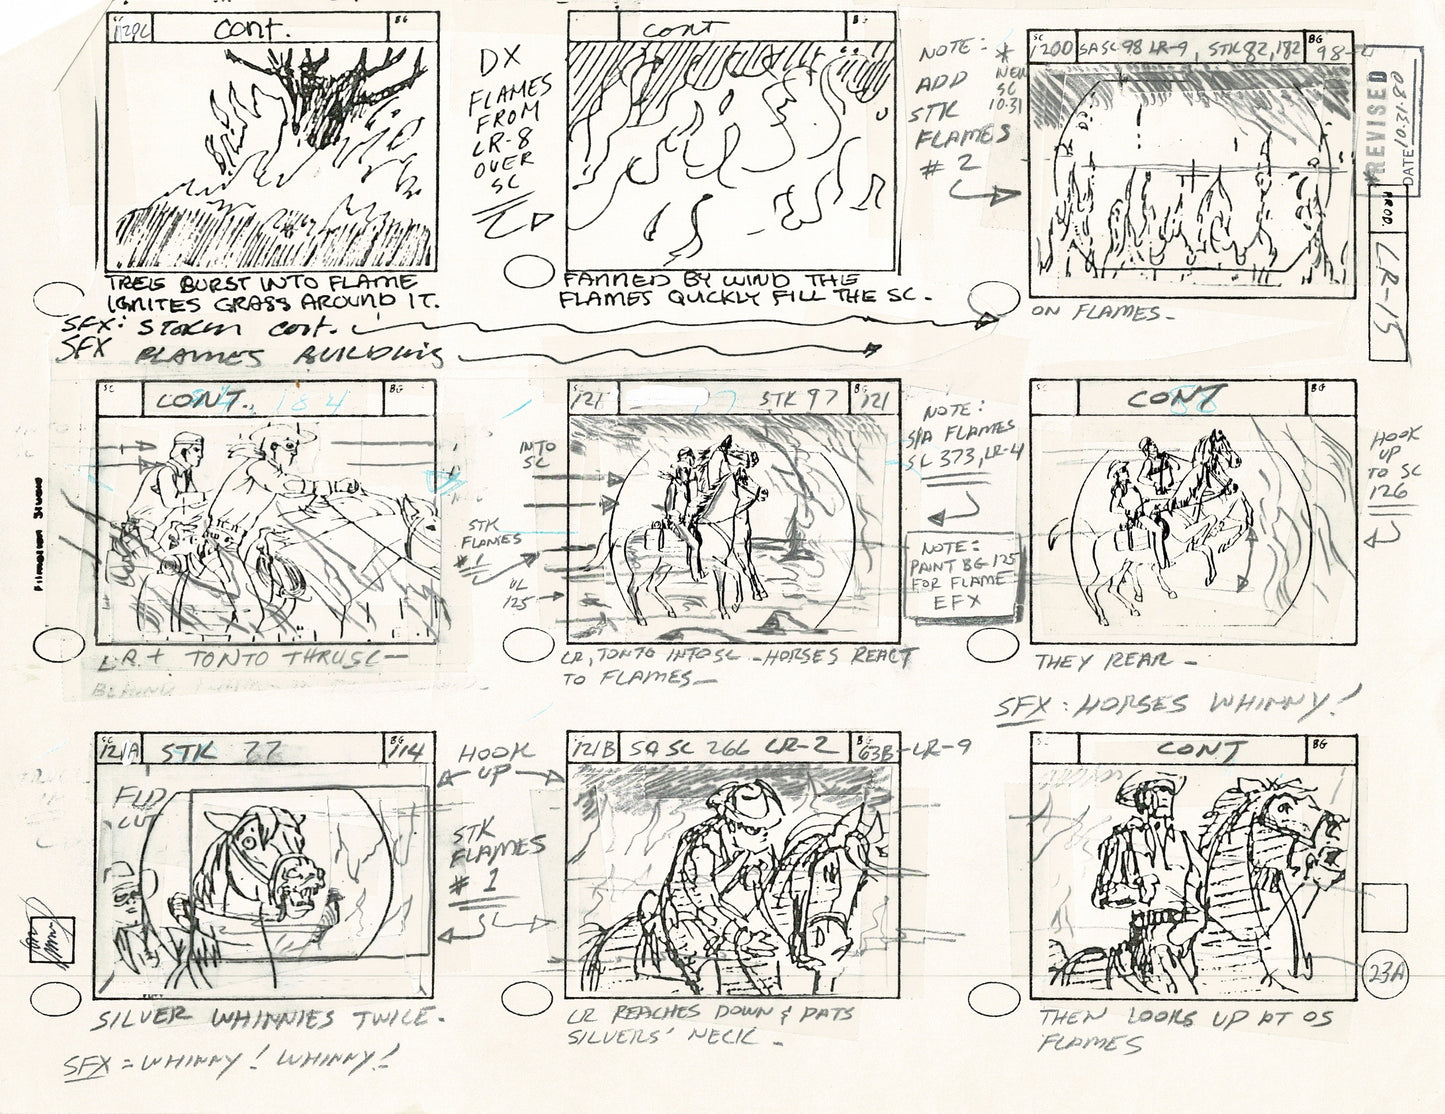 SC
120C
CONT.
BG
DX
FLAMES
FROM
LR-8
OVER
SC
CONT
NOTE: *
ADD
STK
FLAMES
# 2
NEW
SC
10-31
SC
120D
SA SC 98 LR-9, STK 82, 182
BG
REVISED
DATE 10.31.80
PROD.
LR-15
TREES BURST INTO FLAME
IGNITES GRASS AROUND IT.
FANNED BY WIND THE
FLAMES QUICKLY FILL THE SC.
ON FLAMES_
SFX: STORM CONT.
SFX FLAMES BUILDING
SC
CONT.
184
BG
STK
FLAMES
# 1
INTO
SC
UL
125
121
STK 97
BG
121
NOTE:
S/A FLAMES
SC 373, LR-4
NOTE:
PAINT BG 125
FOR FLAME
EFX
SC
CONT
BG
HOOK
UP
TO SC
126
Filmation Studios
LR + TONTO THRU SC—
BEHIND
LR, TONTO INTO SC - HORSES REACT
TO FLAMES_
THEY REAR -
SFX: HORSES WHINNY!
SC
121A
STK 22
BG
114
FLD
CUT
HOOK
UP
STK
FLAMES
# 1
SC
121B
SA SC 266 LR-2
BG
63B-LR-9
SC
CONT
BG
23A
SILVER WHINNIES TWICE.
SFX = WHINNY! WHINNY!
LR REACHES DOWN & PATS
SILVERS' NECK -
THEN LOOKS UP AT OS
FLAMES